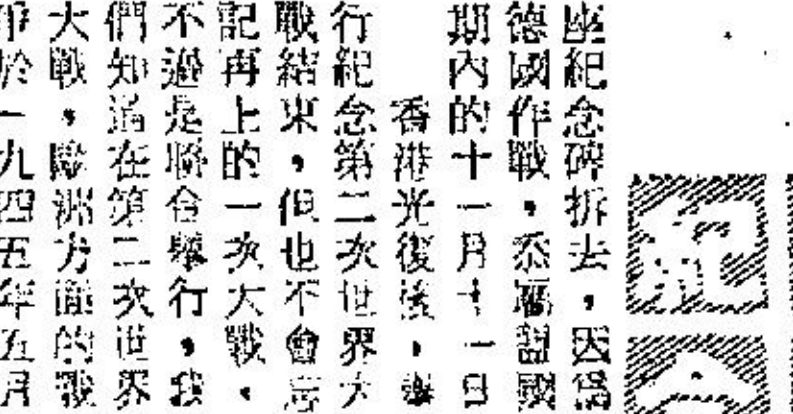 紀
座紀念碑拆去，因爲
德國作戰，忝屬盟國
期內的十一月十一日
香港光復後，舉
行紀念第二次世界大
戰結束，但也不會忘
記再上的一次大戰。
不過是聯合舉行，我
們知道在第二次世界
大戰，歐洲方面的戰
爭於一九四五年五月